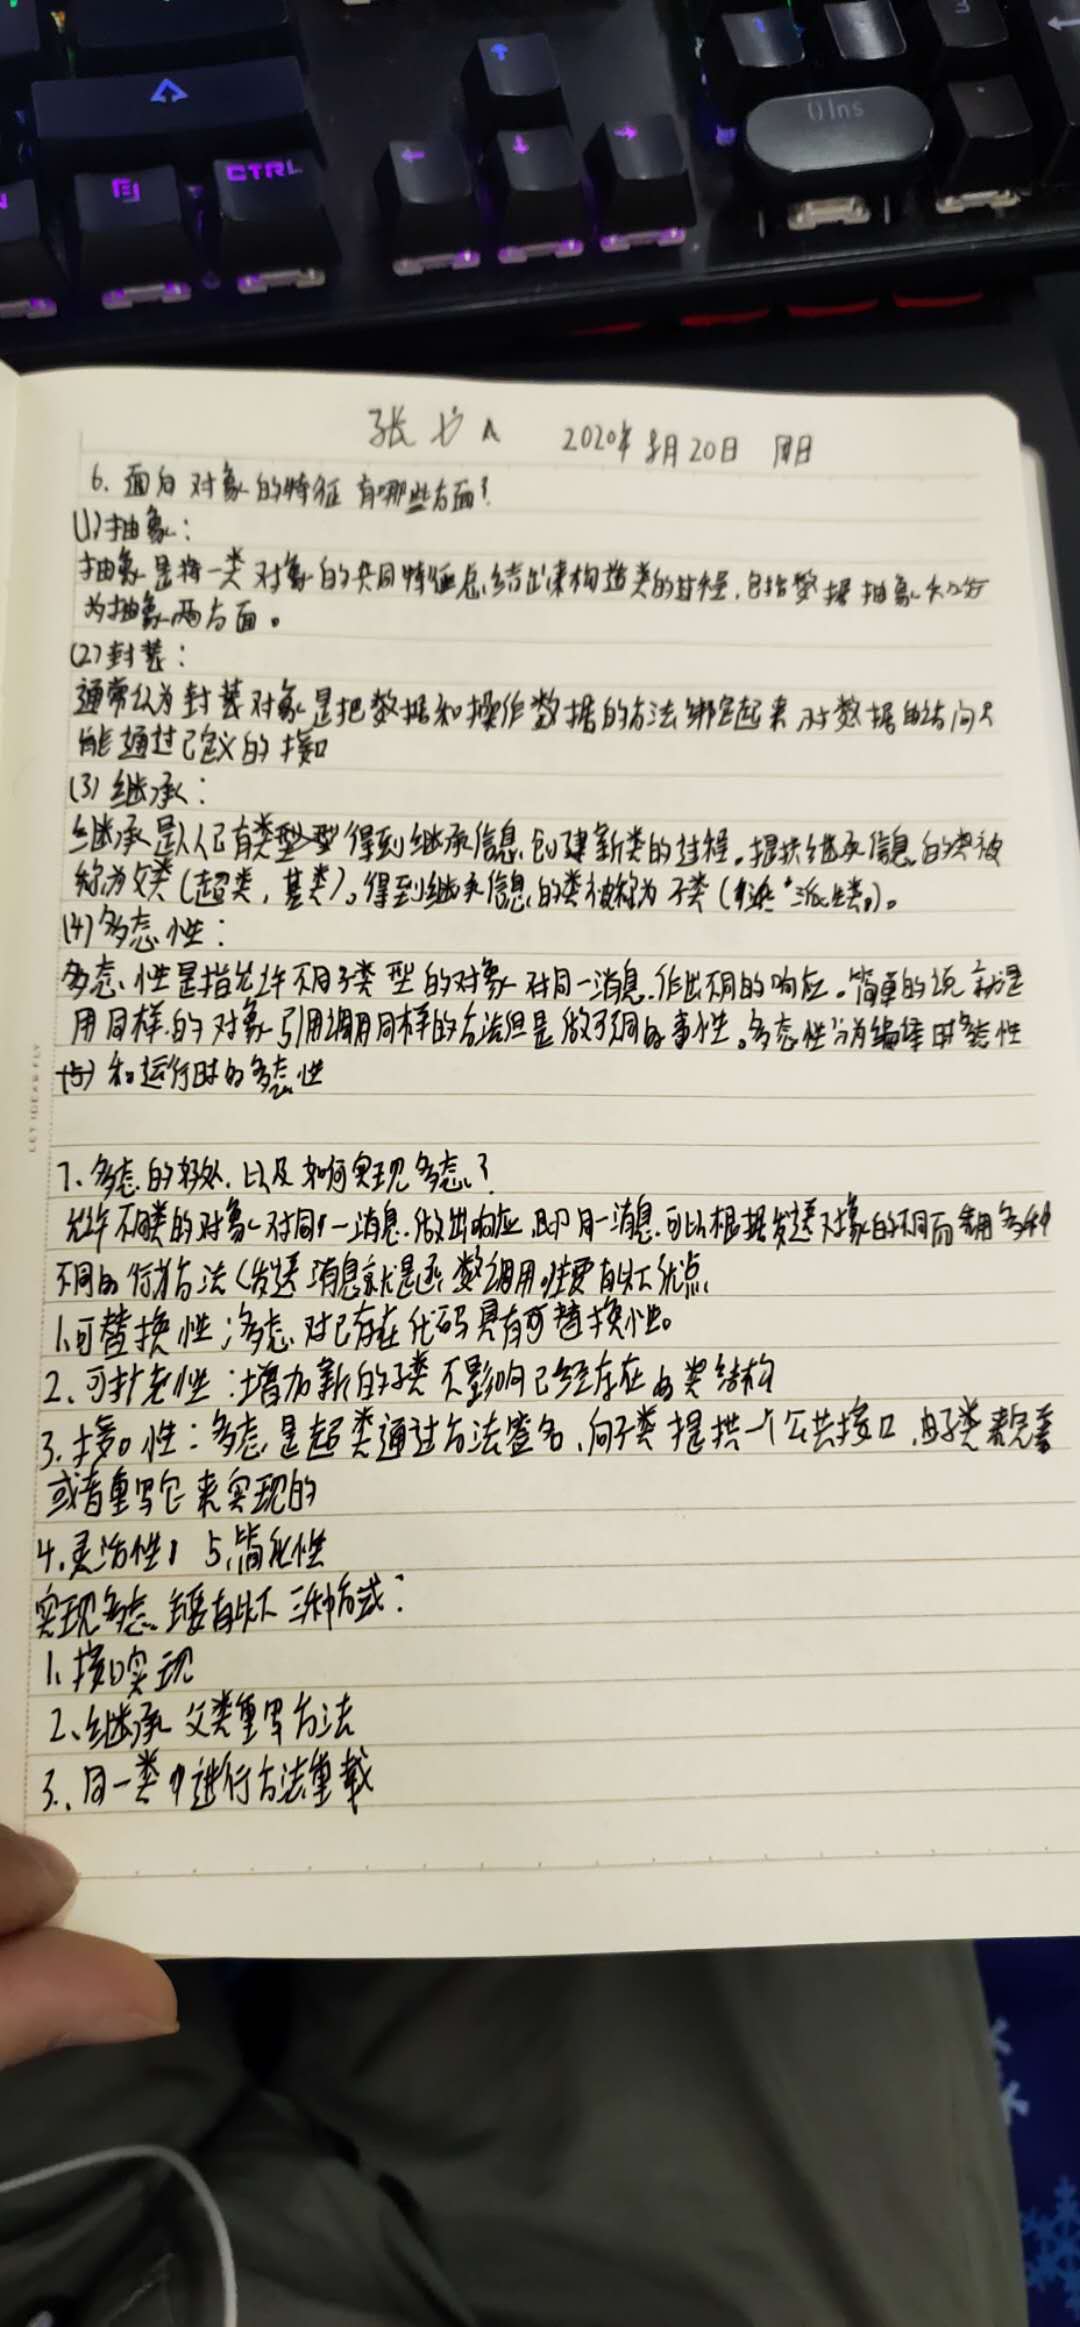 CTRL
0 Ins
张 2020年 月20日 周日
6. 面向对象的特征有哪些方面?
(1)抽象:
抽象是将一类对象的共同特征总结出来构造类的过程,包括数据抽象和行
为抽象两方面。
(2)封装:
通常认为封装对象是把数据和操作数据的方法绑定起来 对数据的访问只
能通过已定义的接口
(3)继承:
继承是从已有类 得到继承信息创建新类的过程。提供继承信息的类被
称为父类(超类,基类)。得到继承信息的类被称为子类( 派生类)。
(4)多态性:
多态性是指允许不同子类型的对象对同一消息作出不同的响应。简单的说就是
用同样的对象引用调用同样的方法但是做了不同的事性。多态性分为编译时多态性
(5) 和运行时的多态性
LET IDEAS FLY
7、多态的好处,以及如何实现多态?
允许不同类的对象对同一消息做出响应,即同一消息可以根据发送对象的不同而采用多种
不同的行为方法(发送消息就是函数调用。主要有以下优点
1、可替换性:多态对已存在代码具有可替换性。
2、可扩充性:增加新的子类不影响已经存在的类结构
3、接口性:多态是超类通过方法签名,向子类提供一个公共接口,由子类来完善
或者重写它来实现的
4、灵活性; 5、简化性
实现多态主要有以下三种方式:
1、接口实现
2、继承父类重写方法
3、同一类中进行方法重载